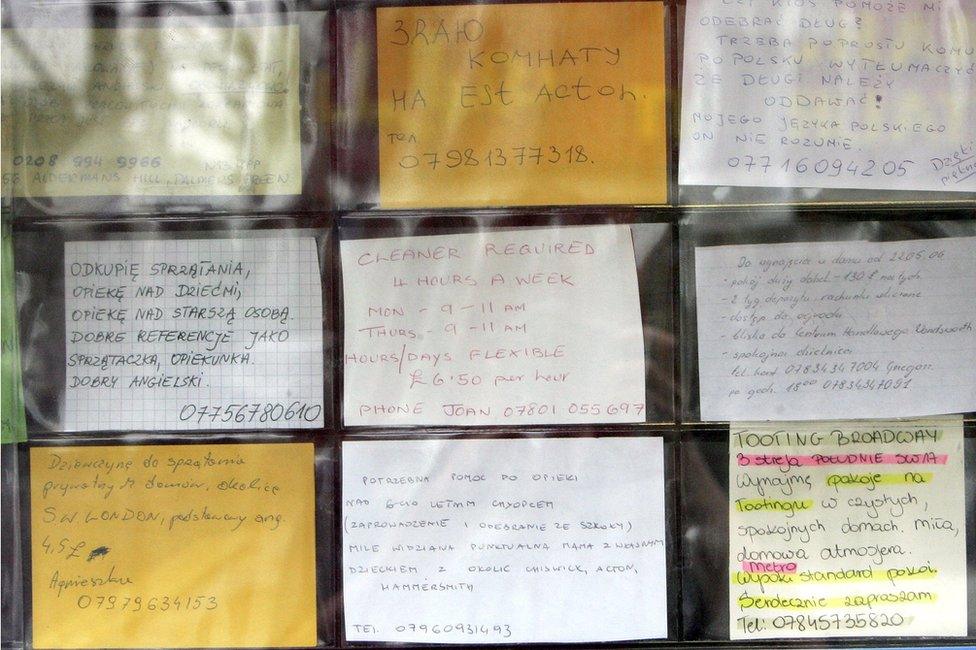 0208 994 9966
56 ALDERMANS HILL, PALMERS GREEN
ЗДАЮ
КОМНАТЫ
НА EST ACTON.
ТЕЛ
07981377318.
POMOŻE MI
ODEBRAĆ DŁUG?
TRZEBA POPROSTU KOMU
PO POLSKU WYTŁUMACZYĆ
ŻE DŁUGI NALEŻY
ODDAWAĆ!
MOJEGO JĘZYKA POLSKIEGO
ON NIE ROZUMIE.
07716094205
Dzięki
ODKUPIĘ SPRZĄTANIA,
OPIEKĘ NAD DZIEĆMI,
OPIEKĘ NAD STARSZĄ OSOBĄ.
DOBRE REFERENCJE JAKO
SPRZĄTACZKA, OPIEKUNKA.
DOBRY ANGIELSKI.
07756780610
CLEANER REQUIRED
4 HOURS A WEEK
MON - 9-11 AM
THURS - 9-11AM
HOURS/DAYS FLEXIBLE
£6.50 per hour
PHONE JOAN 07801 055697
Do wynajęcia w domu od 22.05.06
- pokój duży dobel - 130 £ na tydz.
- 2 tyg depozytu, rachunki wliczone
- dostęp do ogrodu
- blisko do Centrum Handlowego Wandsworth
- spokojna dzielnica
tel. kont. 07834347004 Grzegorz
po godz. 18⁰⁰ 07834347051
Dziewczynę do sprzątania
prywatnych domów, okolice
S.W. LONDON, podstawowy ang.
4,5£
Agnieszka
07979634153
POTRZEBNA POMOC DO OPIEKI
NAD 6-CIO LETNIM CHŁOPCEM
(ZAPROWADZENIE I ODEBRANIE ZE SZKOŁY)
MILE WIDZIANA PUNKTUALNA MAMA Z WŁASNYM
DZIECKIEM Z OKOLIC CHISWICK, ACTON,
HAMMERSMITH
TEL. 07960931493
TOOTING BROADWAY
3 strefa POŁUDNIE SW17
Wynajmę pokoje na
Tootingu w czystych,
spokojnych domach. Miła,
domowa atmosfera.
Metro
Wysoki standard pokoi.
Serdecznie zapraszam
Tel: 07845735820